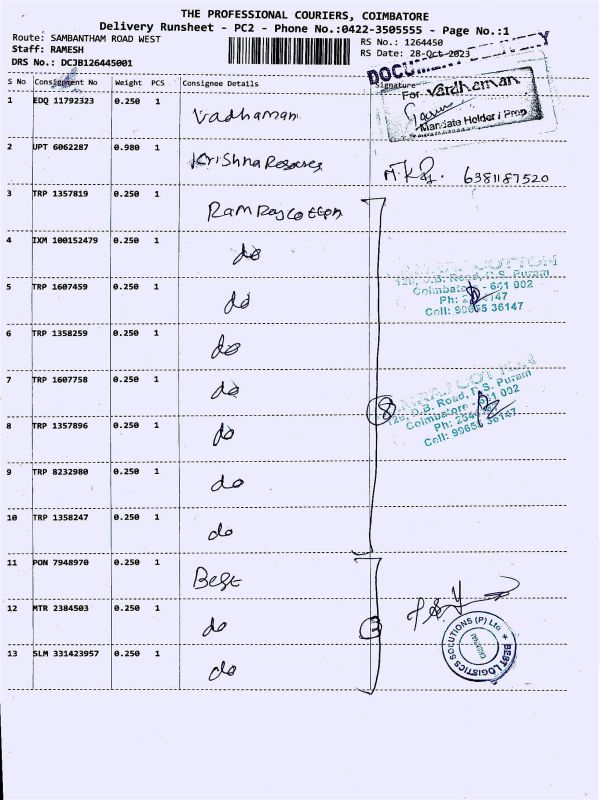 THE PROFESSIONAL COURIERS, COIMBATORE
Delivery Runsheet - PC2 - Phone No.:0422-3505555 - Page No.:1
Route: SAMBANTHAM ROAD WEST
RS No.: 1264450
Staff: RAMESH
RS Date: 28-Oct-2023
DRS No.: DCJB126445001
S No Consignment No Weight PCS Consignee Details Signature
For vardhaman
Mandate Holder / Prop
1 EDQ 11792323 0.250 1 Vadhaman
2 UPT 6062287 0.980 1 Krishna
6381187520
3 TRP 1357819 0.250 1 Ram Raj cotton
4 IXM 100152479 0.250 1 do
COTTON
D.B. Road, R.S. Puram
Coimbatore - 641 002
Cell: 99655 36147
5 TRP 1607459 0.250 1 do
6 TRP 1358259 0.250 1 do
7 TRP 1607758 0.250 1 do
8
COTTON
D.B. Road, R.S. Puram
Coimbatore - 641 002
Cell: 99655 36147
8 TRP 1357896 0.250 1 do
9 TRP 8232980 0.250 1 do
10 TRP 1358247 0.250 1 do
11 PON 7948970 0.250 1 Best
12 MTR 2384503 0.250 1 do
3
BEST LOGISTICS SOLUTIONS (P) Ltd
13 SLM 331423957 0.250 1 do